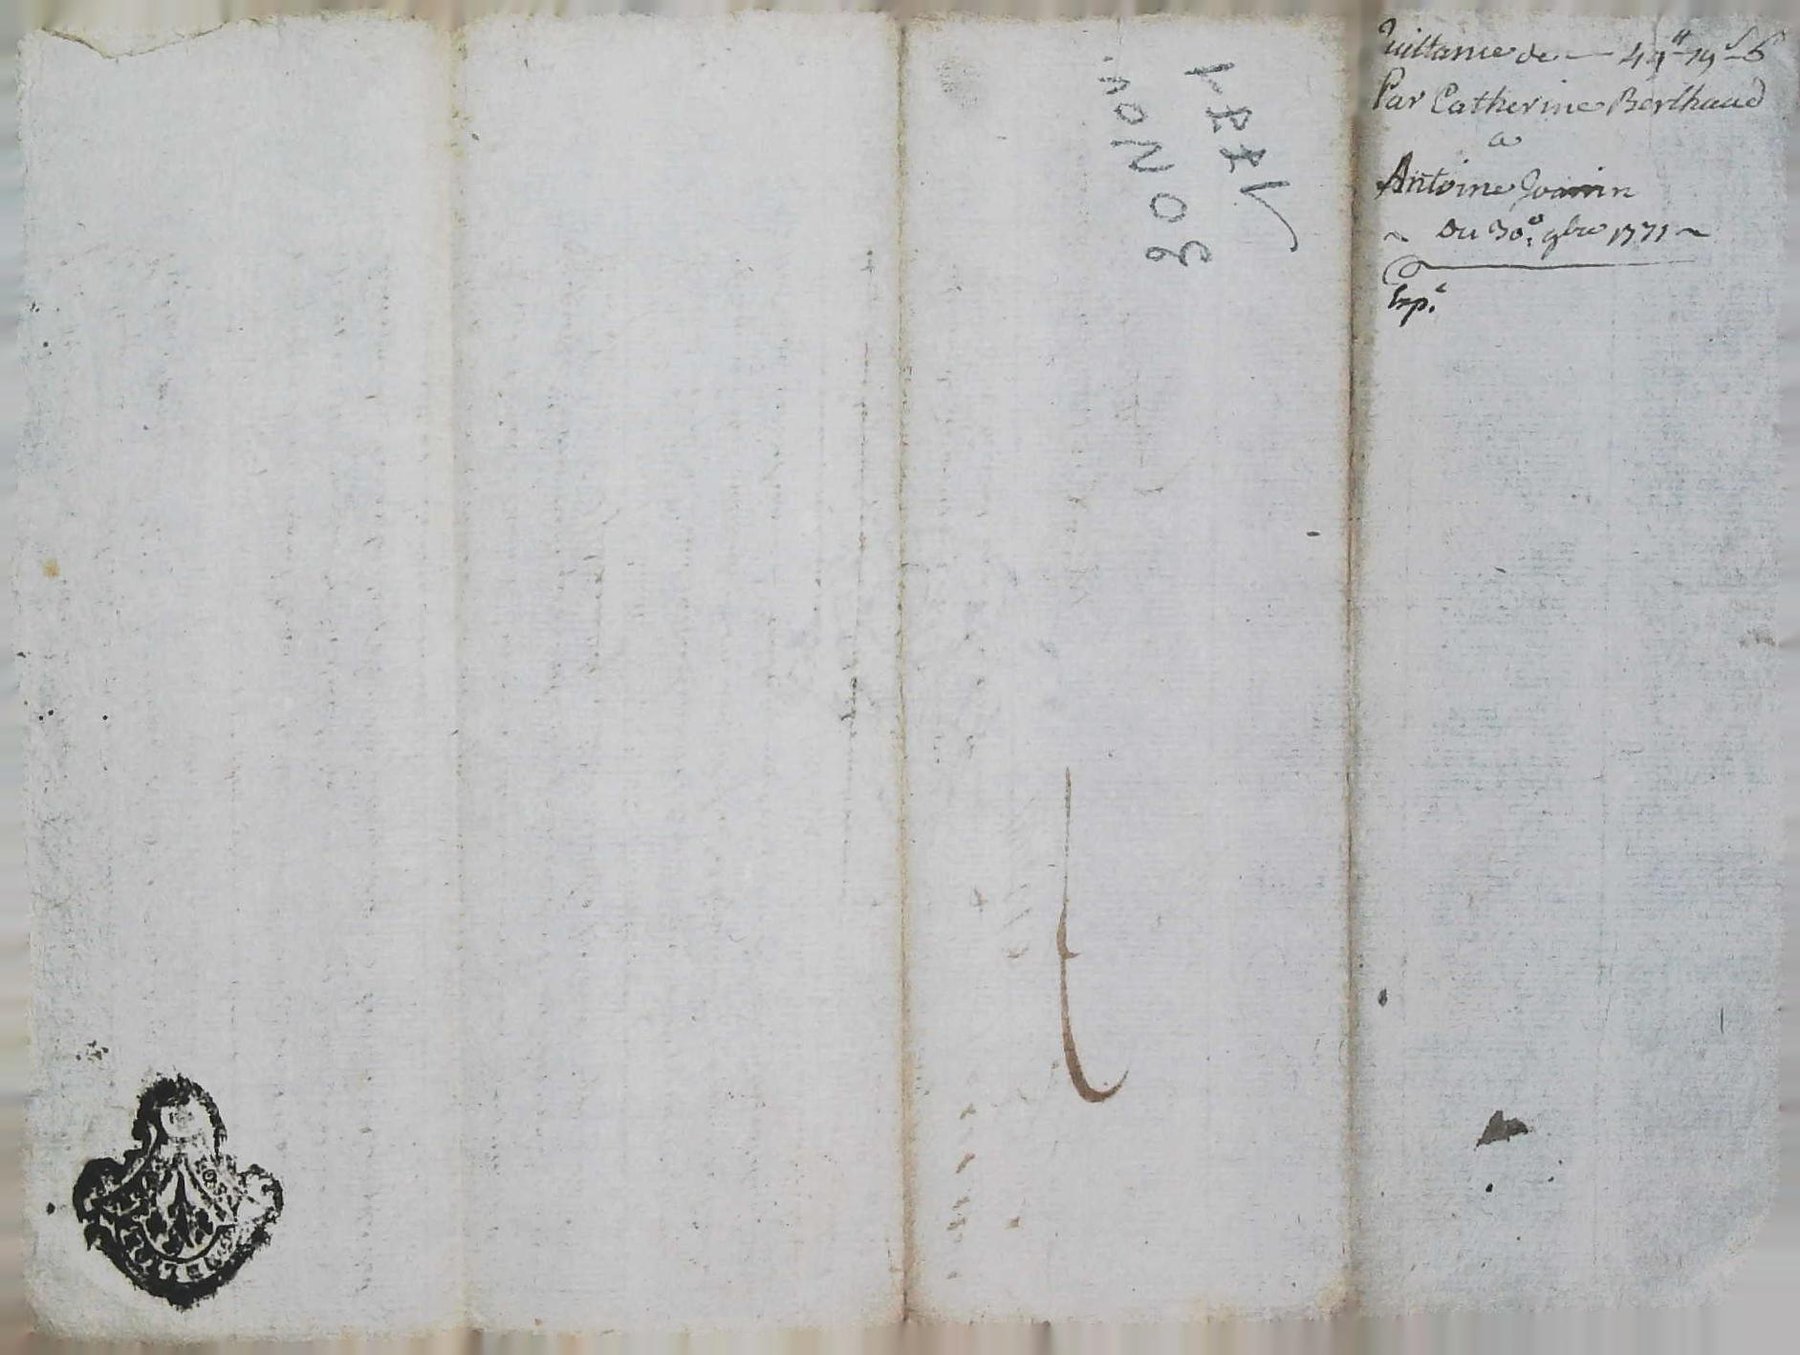 quittance de — 49ᵗᵗ 19ˢ 6
Par Catherine Berthaud
a
Antoine Joanin
~ Du 30ᵉ. 9bre 1771 ~
Exp.é
30 Nov.
1771